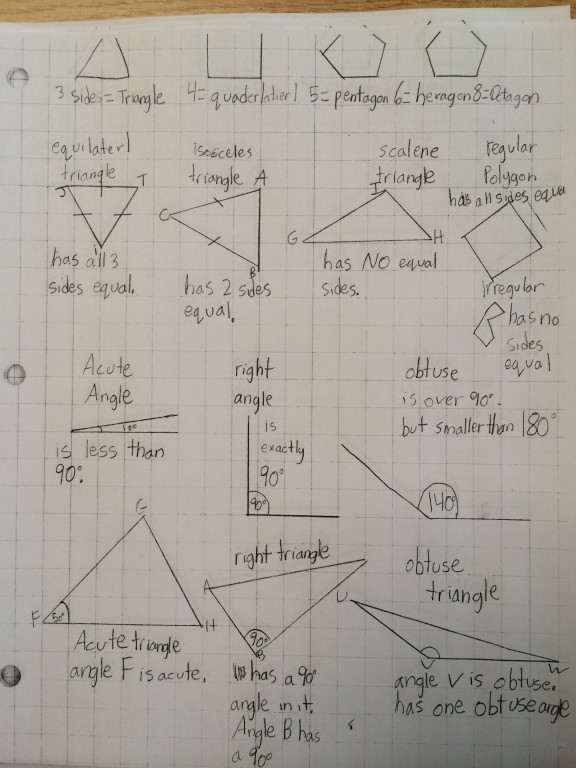 3 sides = Triangle 4 = quaderlatierl 5 = pentagon 6 = hexagon 8 = Octagon
equilaterl
triangle
J T
has all 3
sides equal.
isosceles
triangle A
C
B
has 2 sides
equal.
scalene
triangle
I
G H
has NO equal
sides.
regular
Polygon
has all sides equa
irregular
has no
sides
equal
Acute
Angle
is less than
90°.
right
angle
is
exactly
90°
90°
obtuse
is over 90°.
but smaller than 180°
140°
G
F 50° H
Acute triangle
angle F is acute.
right triangle
A
90°
B
has a 90°
angle in it.
Angle B has
a 90°
obtuse
triangle
U
V W
angle V is obtuse.
has one obtuse angle